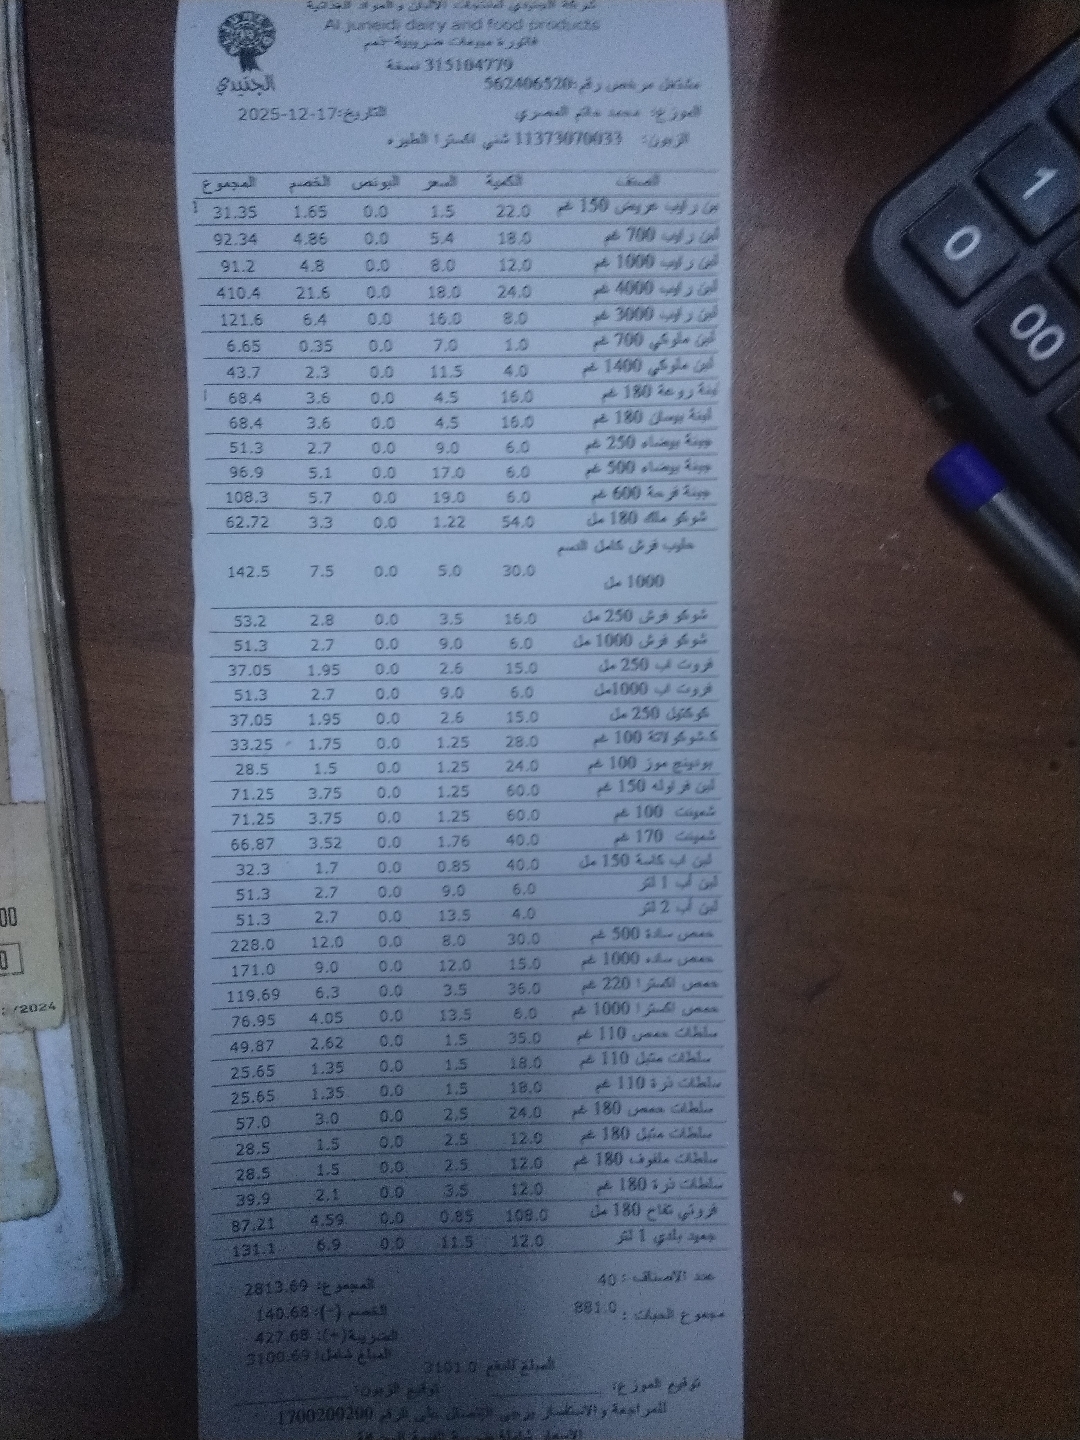 شركة الجنيدي لمنتجات الألبان والمواد الغذائية
Al juneidi dairy and food products
فاتورة مبيعات ضريبية
315184779 نسخة
مشتغل مرخص رقم:562406520
الجنيدي
الموزع: محمد حاتم المصري التاريخ:2025-12-17
الزبون: 11373070033 شني اكسترا الطيره
الصنف الكمية السعر البونص الخصم المجموع
لبن رايب عريض 150 غم 22.0 1.5 0.0 1.65 31.35
لبن رايب 700 غم 18.0 5.4 0.0 4.86 92.34
لبن رايب 1000 غم 12.0 8.0 0.0 4.8 91.2
لبن رايب 4000 غم 24.0 18.0 0.0 21.6 410.4
لبن رايب 3000 غم 8.0 16.0 0.0 6.4 121.6
لبن ملوكي 700 غم 1.0 7.0 0.0 0.35 6.65
لبن ملوكي 1400 غم 4.0 11.5 0.0 2.3 43.7
لبنة روعة 180 غم 16.0 4.5 0.0 3.6 68.4
لبنة بيسان 180 غم 16.0 4.5 0.0 3.6 68.4
جبنة بيضاء 250 غم 6.0 9.0 0.0 2.7 51.3
جبنة بيضاء 500 غم 6.0 17.0 0.0 5.1 96.9
جبنة فرحة 600 غم 6.0 19.0 0.0 5.7 108.3
شوكو ملك 180 مل 54.0 1.22 0.0 3.3 62.72
حليب فرش كامل الدسم
1000 مل 30.0 5.0 0.0 7.5 142.5
شوكو فرش 250 مل 16.0 3.5 0.0 2.8 53.2
شوكو فرش 1000 مل 6.0 9.0 0.0 2.7 51.3
فروت اب 250 مل 15.0 2.6 0.0 1.95 37.05
فروت اب 1000مل 6.0 9.0 0.0 2.7 51.3
كوكتيل 250 مل 15.0 2.6 0.0 1.95 37.05
ك.شوكولاتة 100 غم 28.0 1.25 0.0 1.75 33.25
بودينج موز 100 غم 24.0 1.25 0.0 1.5 28.5
لبن فراوله 150 غم 60.0 1.25 0.0 3.75 71.25
شمينت 100 غم 60.0 1.25 0.0 3.75 71.25
شمينت 170 غم 40.0 1.76 0.0 3.52 66.87
لبن اب كاسة 150 مل 40.0 0.85 0.0 1.7 32.3
لبن أب 1 لتر 6.0 9.0 0.0 2.7 51.3
لبن أب 2 لتر 4.0 13.5 0.0 2.7 51.3
حمص سادة 500 غم 30.0 8.0 0.0 12.0 228.0
حمص ساده 1000 غم 15.0 12.0 0.0 9.0 171.0
حمص اكسترا 220 غم 36.0 3.5 0.0 6.3 119.69
حمص اكسترا 1000 غم 6.0 13.5 0.0 4.05 76.95
سلطات حمص 110 غم 35.0 1.5 0.0 2.62 49.87
سلطات متبل 110 غم 18.0 1.5 0.0 1.35 25.65
سلطات ذرة 110 غم 18.0 1.5 0.0 1.35 25.65
سلطات حمص 180 غم 24.0 2.5 0.0 3.0 57.0
سلطات متبل 180 غم 12.0 2.5 0.0 1.5 28.5
سلطات ملفوف 180 غم 12.0 2.5 0.0 1.5 28.5
سلطات ذرة 180 غم 12.0 3.5 0.0 2.1 39.9
فروتي تفاح 180 مل 108.0 0.85 0.0 4.59 87.21
جميد بلدي 1 لتر 12.0 11.5 0.0 6.9 131.1
عدد الاصناف : 40 المجموع: 2813.69
مجموع الحبات : 881.0 الخصم (-): 140.68
الضريبة(+): 427.68
المبلغ شامل: 3100.69
المبلغ للدفع 3101.0
توقيع الموزع: توقيع الزبون:
للمراجعة والاستفسار يرجى الاتصال على الرقم 1700200200
0
1
00
00
0
/2024